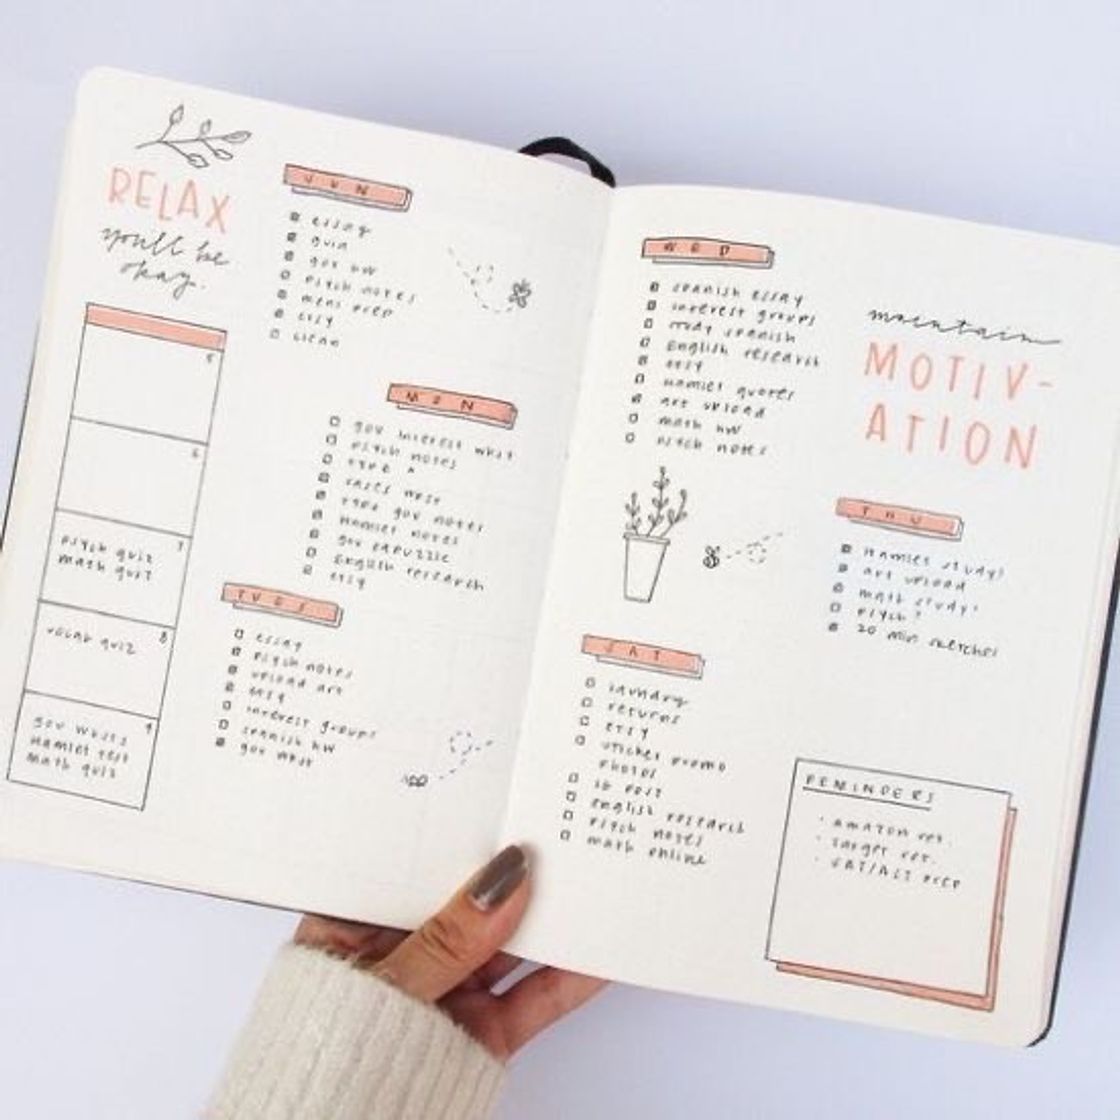 RELAX
you'll be
okay.
5
6
7
psych quiz
math quiz
8
vocab quiz
9
gov wksts
Hamlet test
math quiz
SUN
essay
gov HW
psych notes
meal prep
etsy
clean
MON
gov interest wkst
psych notes
type ^
cases wkst
type gov notes
Hamlet notes
gov edpuzzle
English research
etsy
TUES
essay
psych notes
upload art
etsy
interest groups
spanish HW
gov wkst
WED
spanish essay
interest groups
study spanish
English research
etsy
Hamlet quotes
art upload
math HW
psych notes
maintain
MOTIV-
ATION
THU
Hamlet study!
art upload
math study!
psych?
20 min sketches
SAT
laundry
returns
etsy
sticker promo
photos
IG post
english research
psych notes
math online
REMINDERS
· amazon ret.
· target ret.
· SAT/ACT prep